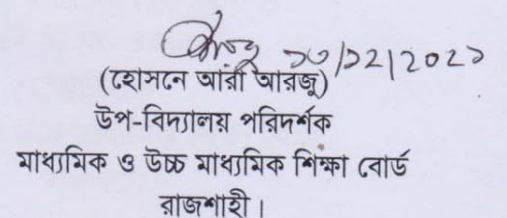 ১৩/১২/২০২১
(হোসনে আরা আরজু)
উপ-বিদ্যালয় পরিদর্শক
মাধ্যমিক ও উচ্চ মাধ্যমিক শিক্ষা বোর্ড
রাজশাহী।